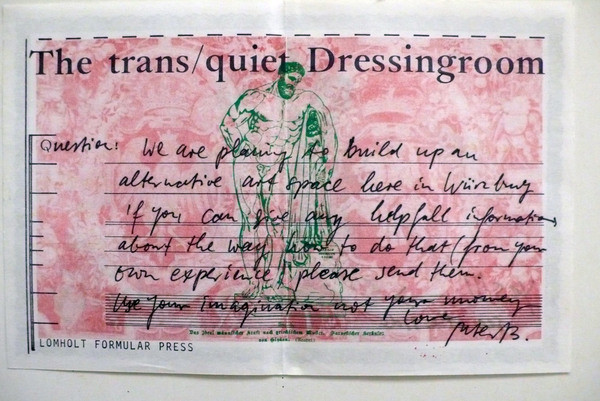 The trans/quiet Dressingroom
Question: We are planing to build up an
alternative art space here in Würzburg
if you can give any helpfull information,
about the way how to do that (from your
own experience) please send them.
Use your imagination not your money
love
Peter B.
Das Ideal männlicher Kraft nach griechischem Muster. Farnesischer Herkules
von Glykon.
LOMHOLT FORMULAR PRESS